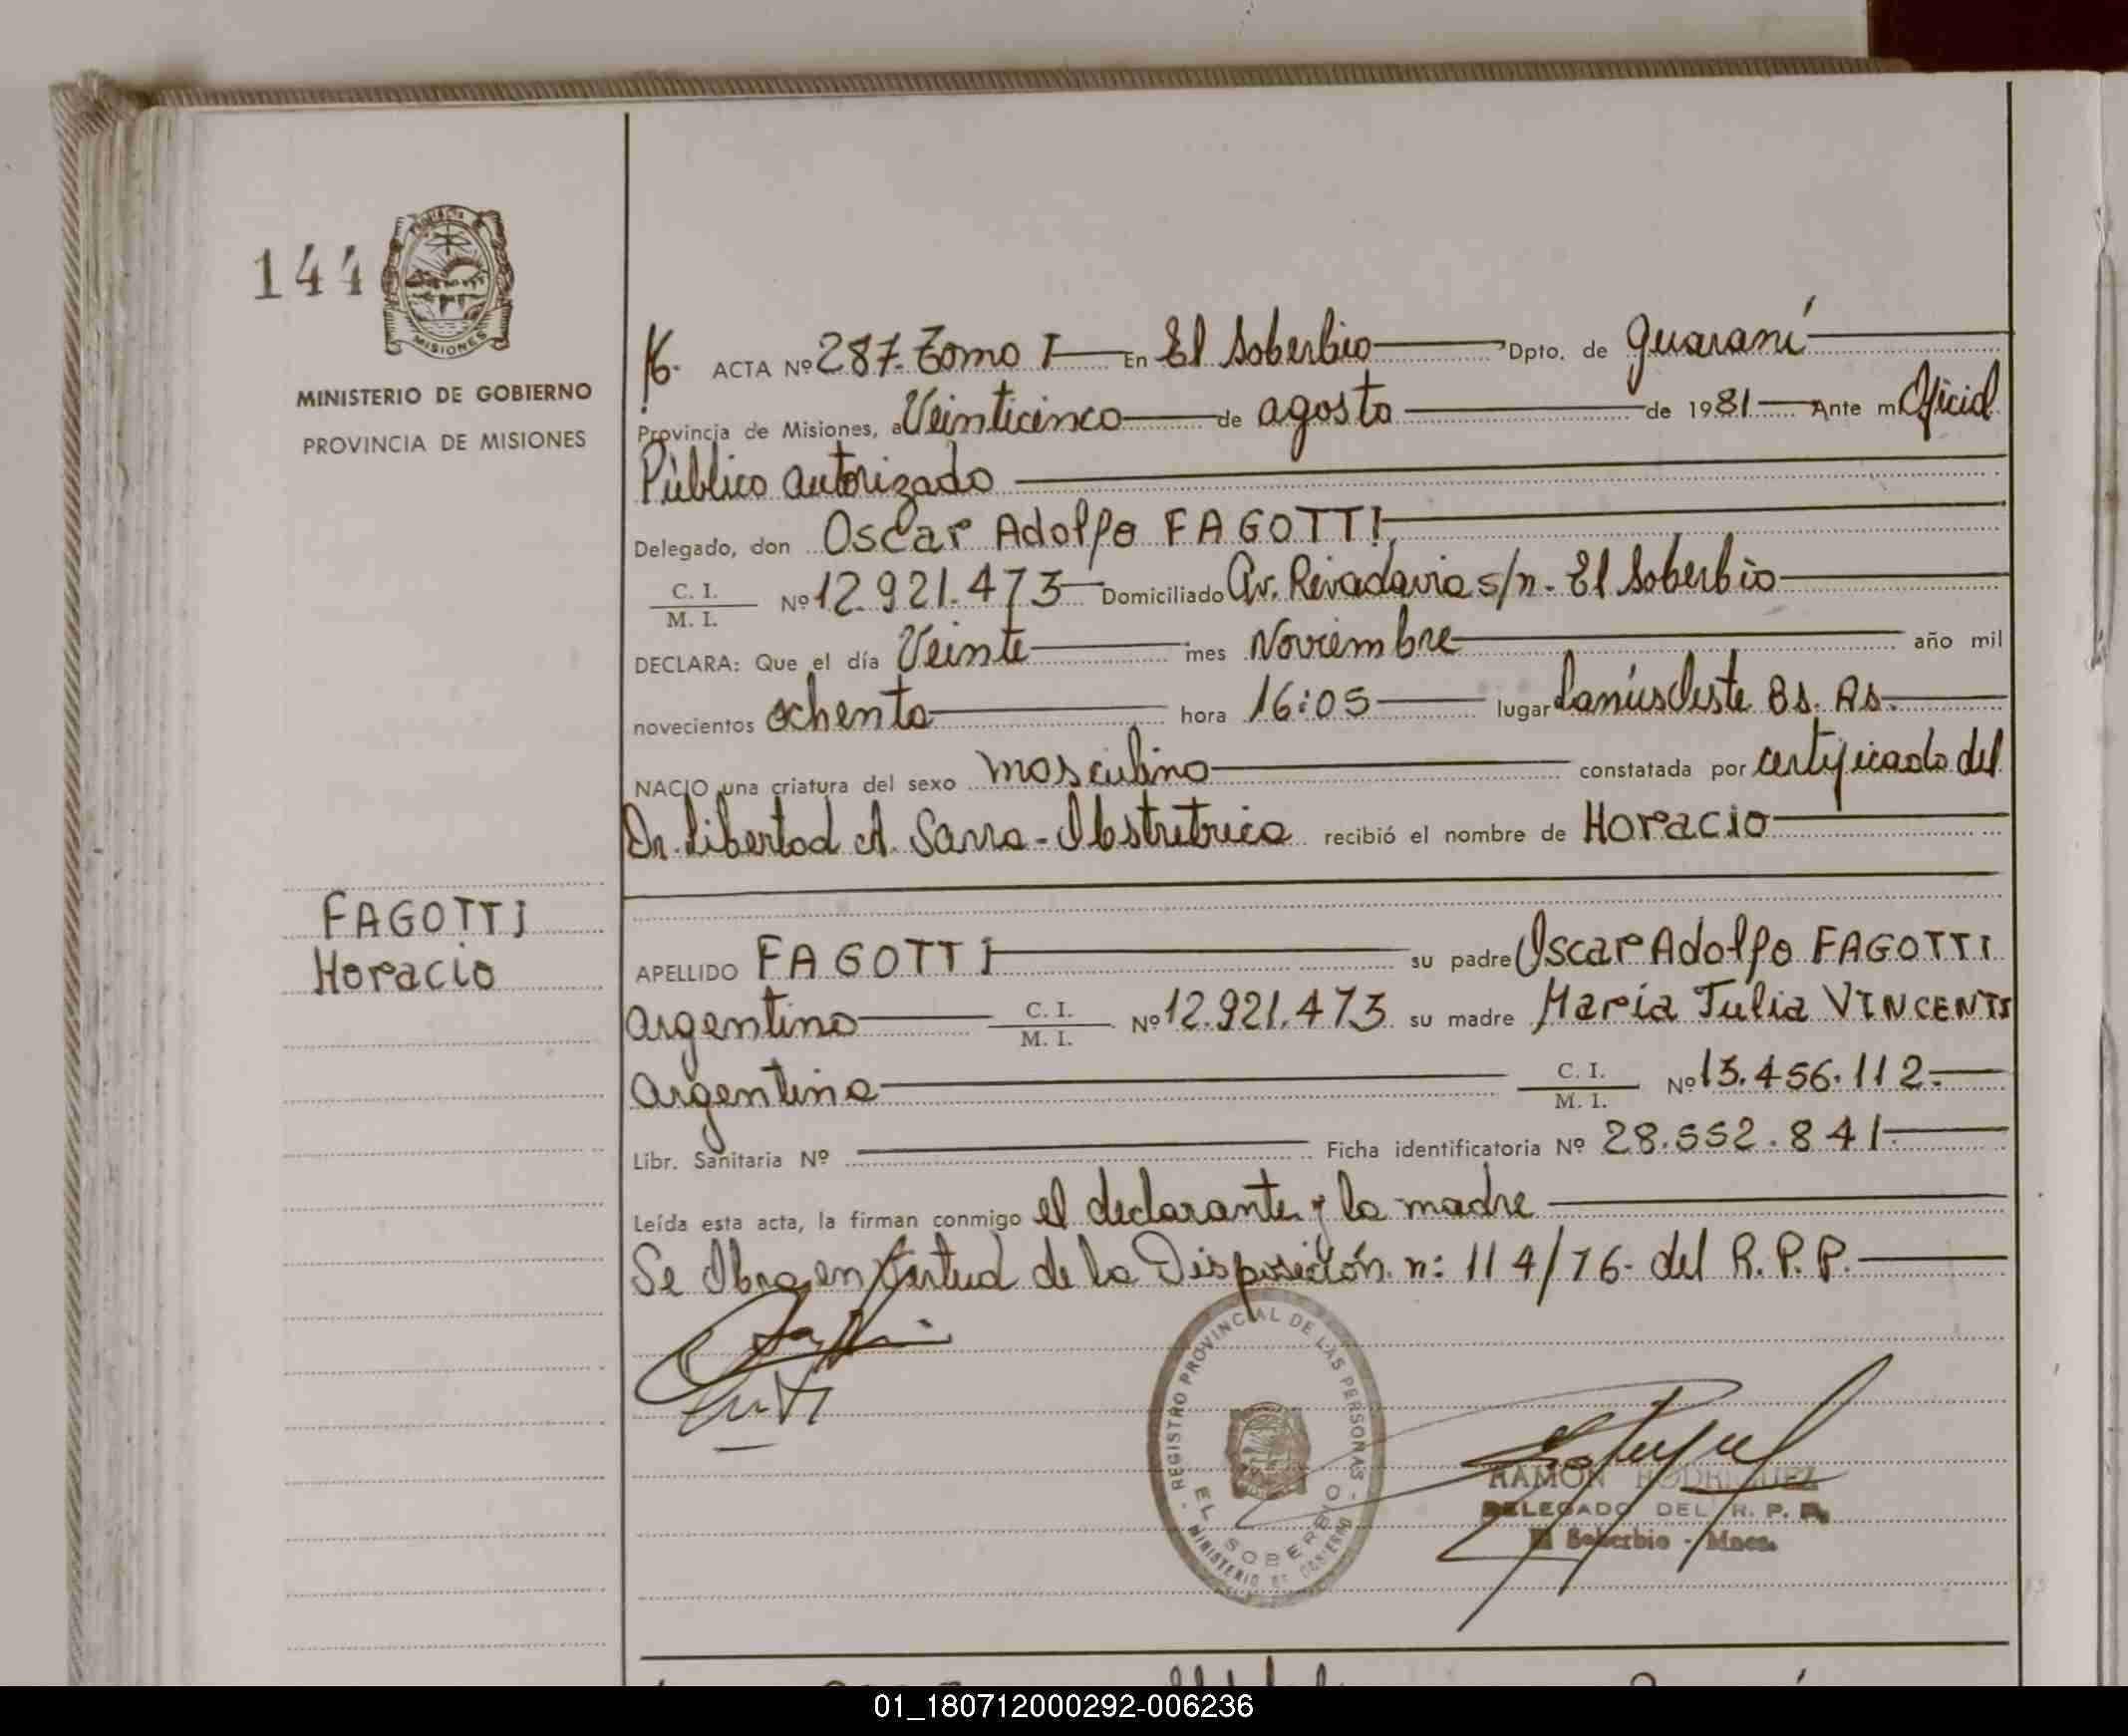 144
MISIONES
MINISTERIO DE GOBIERNO
PROVINCIA DE MISIONES
ACTA Nº 287. Tomo I En El Soberbio Dpto. de Guaraní
Provincia de Misiones, a Veinticinco de agosto de 1981 Ante mí Oficial
Público autorizado
Delegado, don Oscar Adolfo FAGOTTI
C. I.
M. I. Nº 12.921.473 Domiciliado Av. Rivadavia s/n. El Soberbio
DECLARA: Que el día Veinte mes Noviembre año mil
novecientos ochenta hora 16:05 lugar Lanús Oeste Bs. As.
NACIO una criatura del sexo masculino constatada por certificado del
Dr. Libertad A. Sarra - Obstretrica recibió el nombre de Horacio
FAGOTTI
Horacio
APELLIDO FAGOTTI su padre Oscar Adolfo FAGOTTI
argentino C. I.
M. I. Nº 12.921.473 su madre María Julia VINCENTI
argentina C. I.
M. I. Nº 13.456.112.
Libr. Sanitaria Nº Ficha identificatoria Nº 28.552.841.
Leída esta acta, la firman conmigo el declarante y la madre
Se Obra en Virtud de la Disposición n: 114/76. del R. P. P.
REGISTRO PROVINCIAL DE LAS PERSONAS
EL SOBERBIO
MINISTERIO DE GOBIERNO
RAMON RODRIGUEZ
DELEGADO DEL R. P. P.
El Soberbio - Mnes.
01_180712000292-006236